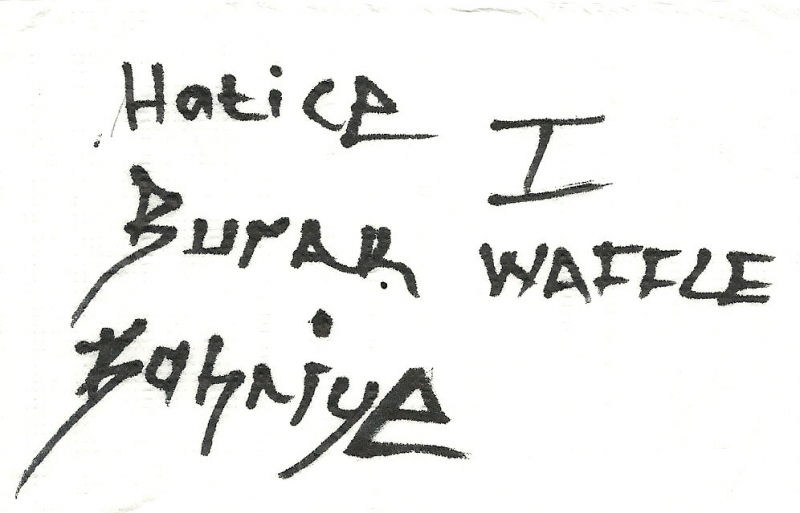 Hatice
Burak
Bahriye
I
WAFFLE